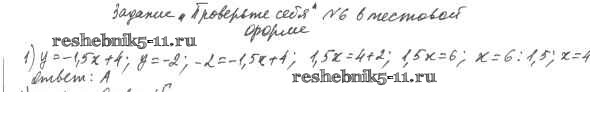 Задание „Проверьте себя" №6 в тестовой
форме
reshebnik5-11.ru
1) y = -1,5x + 4; y = -2; -2 = -1,5x + 4; 1,5x = 4 + 2; 1,5x = 6; x = 6 : 1,5; x = 4
ответ: А
reshebnik5-11.ru